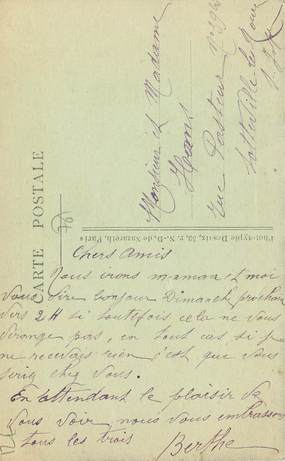 CARTE POSTALE
Monsieur et Madame
Hans
rue Pasteur
Sotteville les Rouen
Phototypie Desaix, 53, r. N.-D. de Nazareth, Paris
Chers Amis
Nous irons maman et moi
vous dire bonjour Dimanche prochain
vers 2H si toutefois cela ne vous
dérange pas, en tout cas si je
ne recevais rien c'est que vous
seriez chez vous.
En attendant le plaisir de
vous voir nous vous embrassons
tous les trois
Berthe